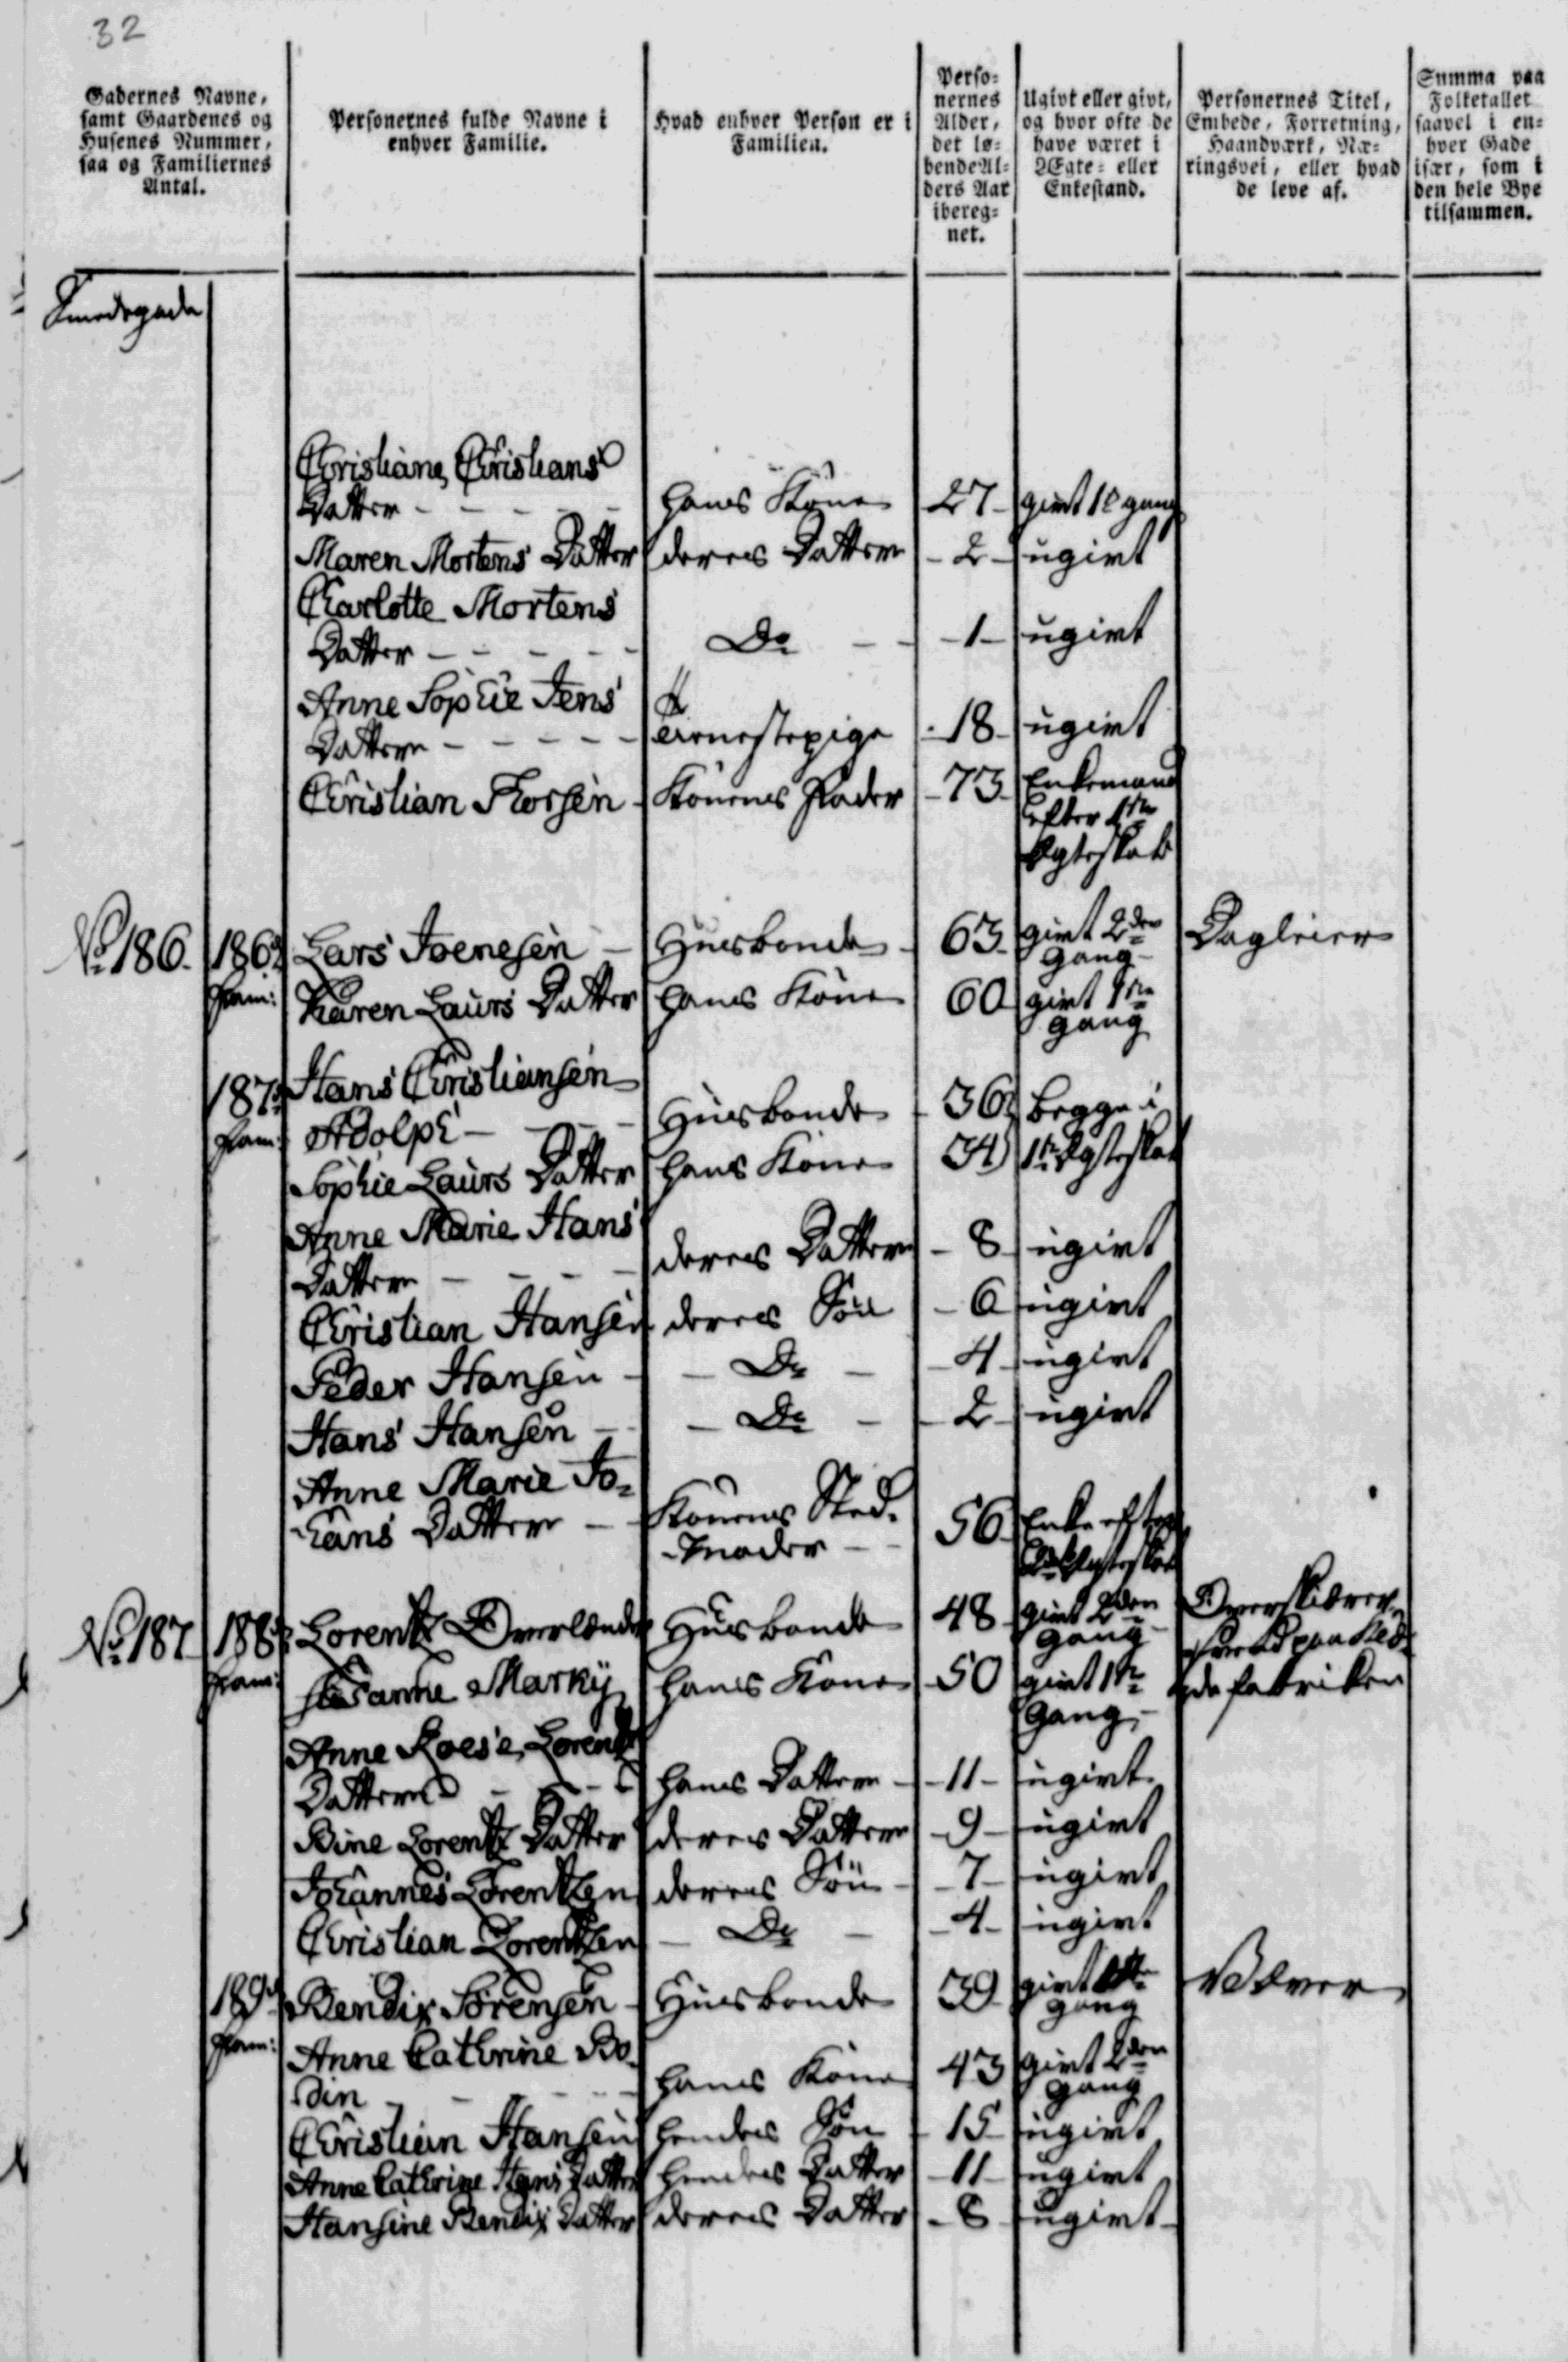 32
Gadernes Navne,
samt Gaardenes og
Husenes Nummer,
saa og Familiernes
Antal.
Personernes fulde Navne i
enhver Familie.
Hvad enhver Person er i
Familien.
Perso-
nernes
Alder,
det lø-
bende Al-
ders Aar
ibereg-
net.
Ugivt eller givt,
og hvor ofte de
have været i
Ægte- eller
Enkestand.
Personernes Titel,
Embede, Forretning,
Haandværk, Næ-
ringsvei, eller hvad
de leve af.
Summa paa
Folketallet
saavel i en-
hver Gade
især, som i
den hele Bye
tilsammen.
Smedegade
Christiane Christians
Datter - - - - - hans Kone 27 givt 1e gang
Maren Mortens Datter deres Datter - 2 - ugivt
Charlotte Mortens
Datter - - - - - Do - - 1 - ugivt
Anne Sophie Jens
Datter - - - - - Tienestepige 18 ugivt
Christian Konens Fader 73 Enkemand
efter 1te
Ægteskab
No 186. 186 Lars Joenesen - Huusbonde 63 givt 2den Dagleier
gang
Fam: Karen Laurs Datter hans Kone 60 givt 1te
gang
187 Hans Christiansen
Fam: Adolph - - - Huusbonde 36 begge i
Sophie Laurs Datter hans Kone 34 1te Ægteskab
Anne Marie Hans
Datter - - - - deres Datter - 8 ugivt
Christian Hansen deres Søn - 6 ugivt
Peder Hansen - - Do - - 4 ugivt
Hans Hansen - - Do - - 2 ugivt
Anne Marie Jo-
hans Datter - Konens Sted-
moder - - 56 Enke efter
Ægteskab
No 187 188 Lorentz Overlænder Huusbonde 48 givt 2den
gang
Fam: Susanne Marky hans Kone 50 givt 1te fabriken
gang
Anne Lorentz
Datter - - - hans Datter - 11 - ugivt
Bine Lorentz Datter deres Datter - 9 - ugivt
Johannes Lorentzen deres Søn - 7 - ugivt
Christian Lorentzen - Do - - 4 - ugivt
189 Bendix Sørensen - Huusbonde 39 givt 1te Væver
gang
Fam: Anne Cathrine Bo-
din - - - hans Kone 43 givt 2den
gang
Christian Hansen hendes Søn 15 ugivt
Anne Cathrine Hans Datter hendes Datter 11 ugivt
Hansine Bendix Datter deres Datter - 8 ugivt